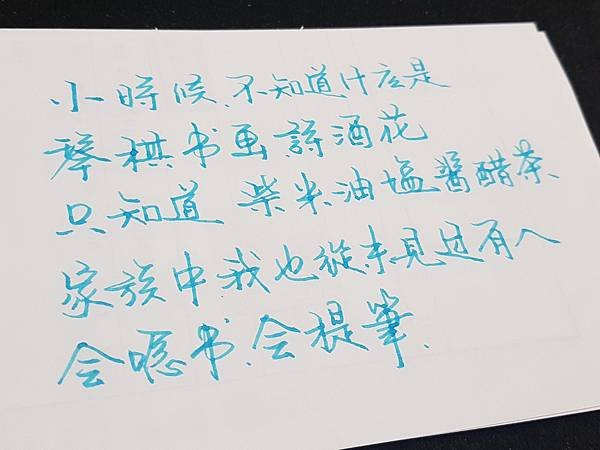 小時候、不知道什么是
琴棋书画詩酒花
只知道 柴米油塩醬醋茶、
家族中、我也從未見过有人
会唸书、会提筆、